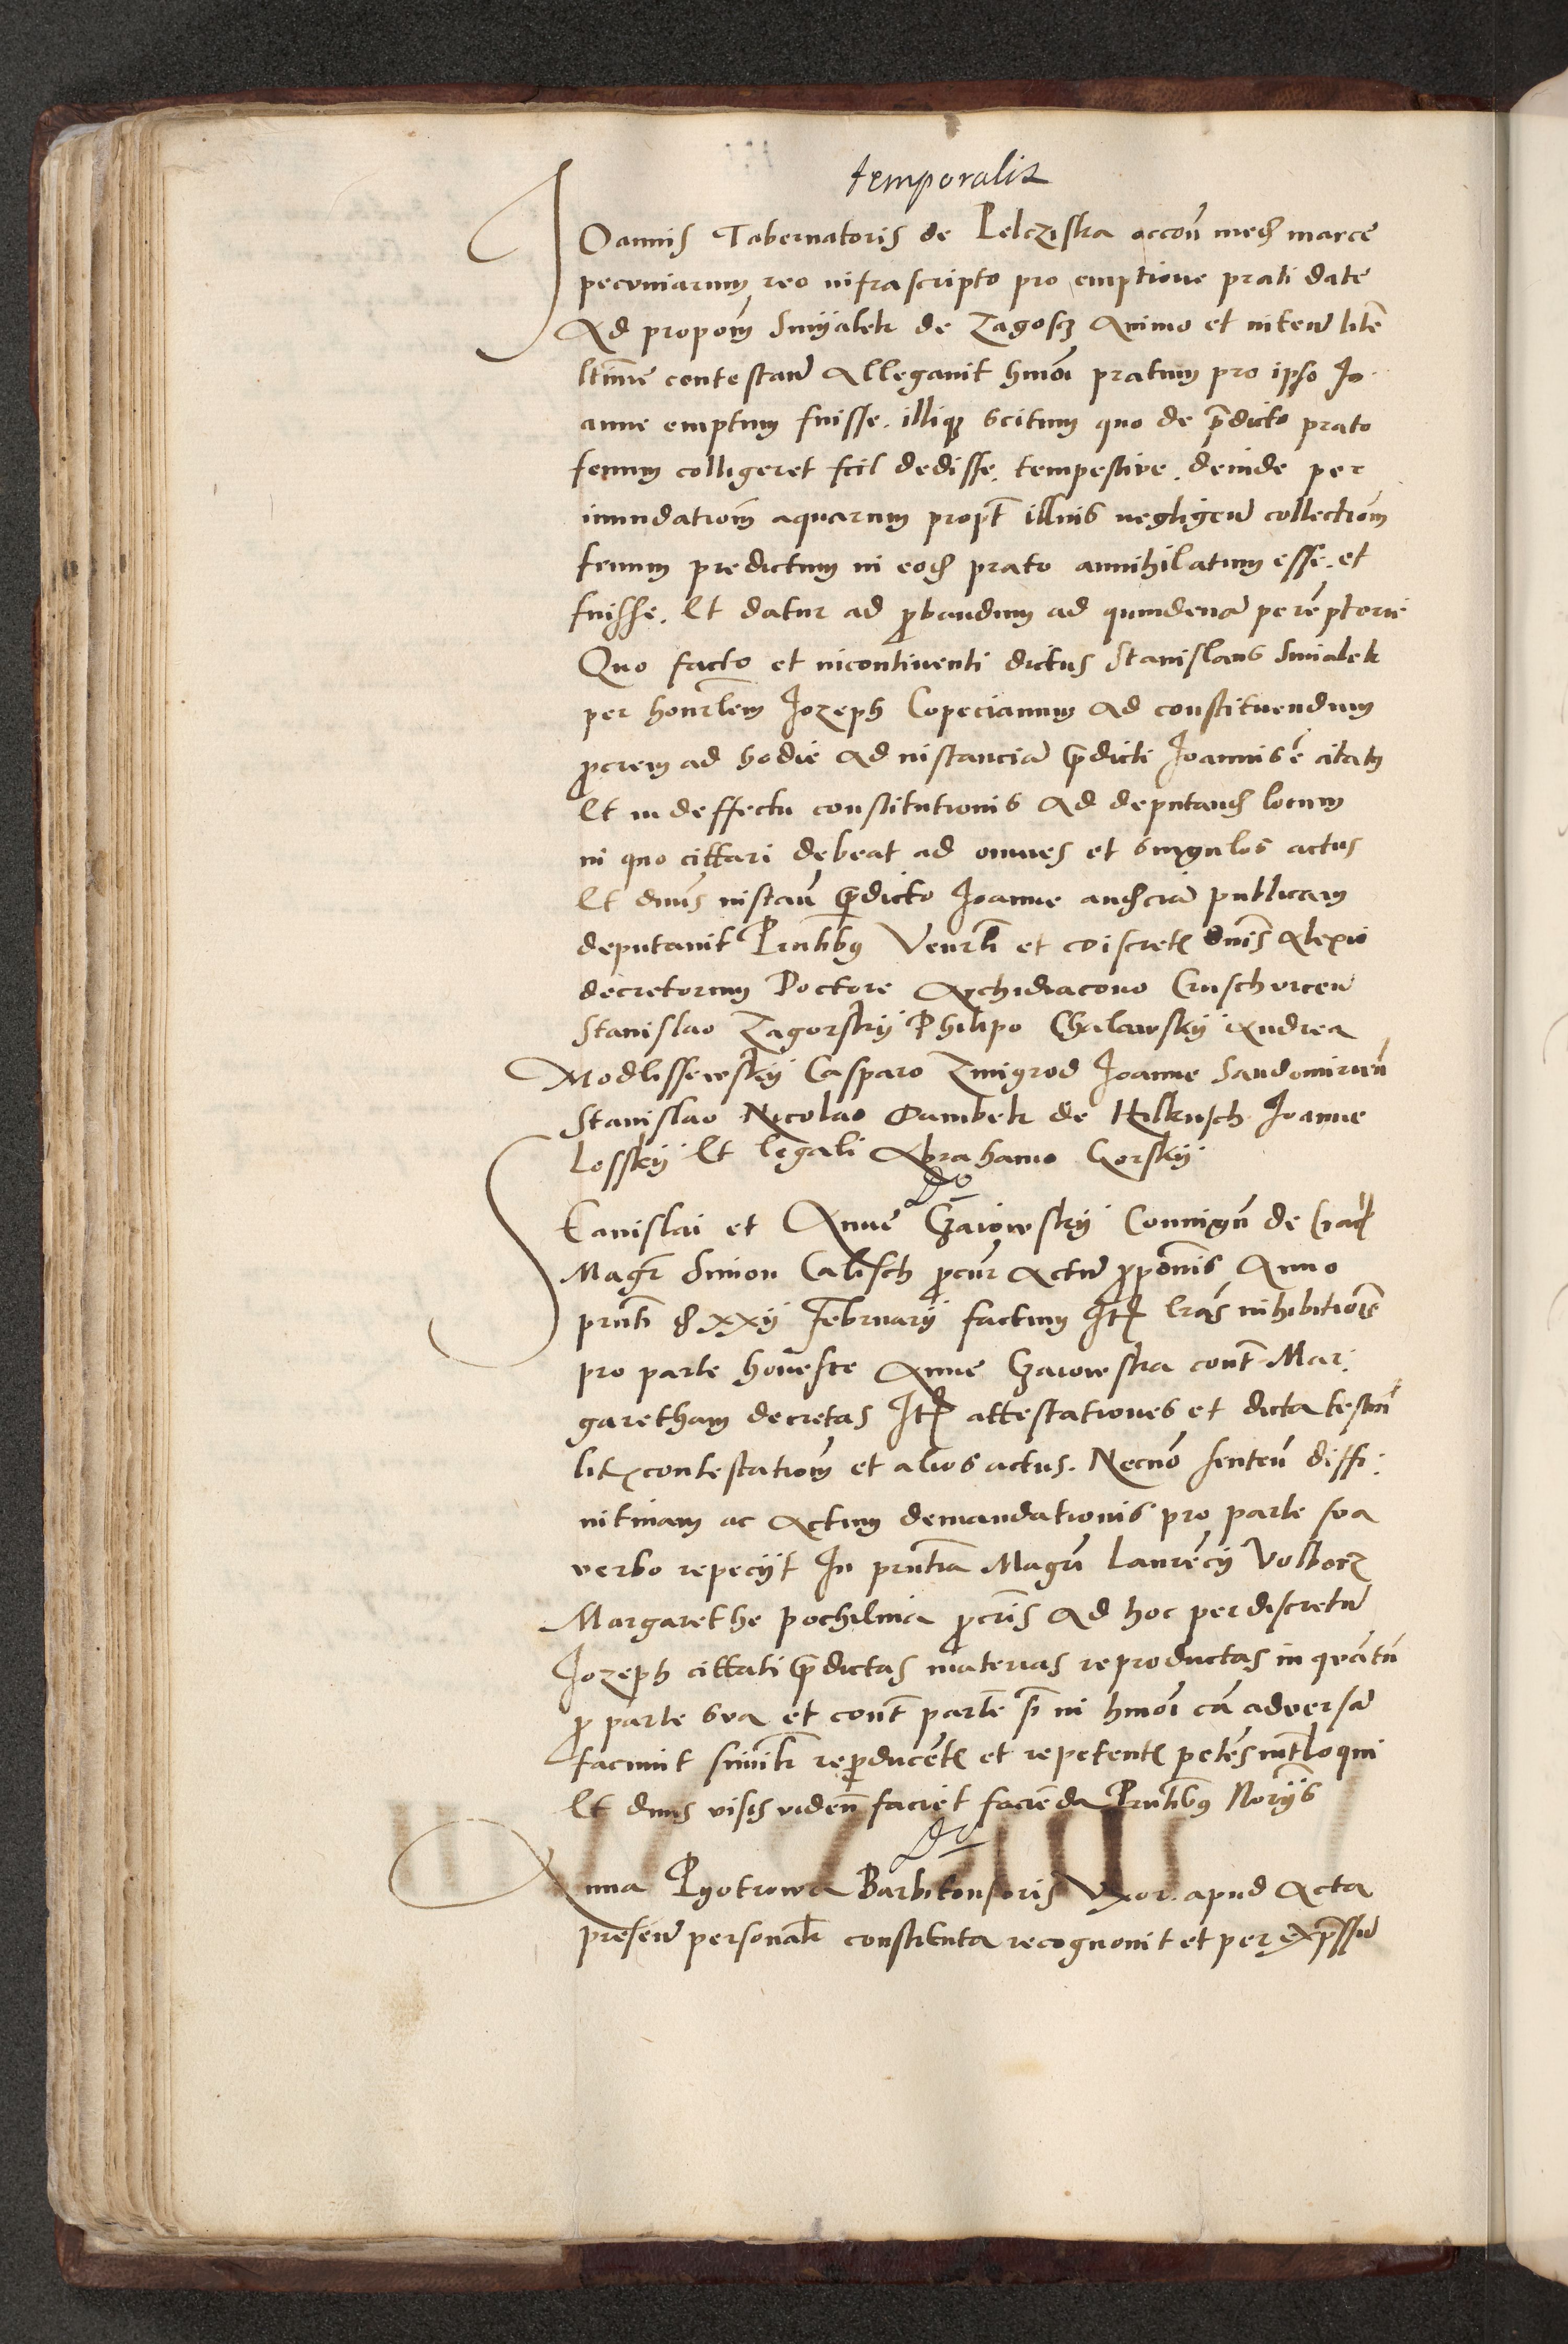 temporalis
Joannis Tabernatoris de Pelcziska accoñ med marce
pecuniarum reo infrascripto pro emptione prati date
Ad propoñ Smÿalek de Zagoscz Animo et inteñ litẽ
ltime contestañ Allegauit hmõi pratum pro ipso Jo
anne emptum fuisse. illique scitum quo de p̃dicto prato
fenum colligeret fcil dedisse. tempestiue. deinde per
inundatioñ aquarum propt̃ illius negligeñ collectioñ
fenum predictum in eod prato annihilatum esse. et
fuisse. Et datur ad ꝓbandum ad quindenã perẽptorie
Quo facto et incontinenti dictus Stanislaus Smialek
per honrlẽm Jozeph Copecianum Ad constituendum
ꝓcrem ad hodie Ad instanciã p̃dicti Joannis ẽ citatus
Et in deffectu constitutionis Ad deputand locum
in quo cittari debeat ad omnes et singulos actus
Et dnus instañ p̃dicto Joanne audenciã publicam
deputauit Pntibus Venrli et discretis dnis Alexio
decretorum Doctore Archidiacono Cruschvicen
Stanislao Zagorskÿ Philipo Chalawskÿ Andrea
Modlissewskÿ Casparo Zmigrod Joanne Sandomirieñ
Stanislao Nicolao Dambek de Hilkusch Joanne
Losskÿ Et legali Abrahamo Gorskÿ
Do
Stanislai et Anne Gzaiowskÿ Coniugũ de
Magr Simon Calisch ꝓcur Actũ ꝓpõnis Anno
pñti d xxij Februarij factum Itẽ lrãs inhibitiõis
pro parte honeste Anne Gzaiowska cont̃ Mar
garetham decretas Itẽ attestationes et dicta testiũ
litis contestatioñ et alios actus. Necnõ senteñ diffi
nitiuam ac Actum demandationis pro parte sua
verbo repeciit In pñtia Magri Laurẽcij Volborz
Margarethe pochilnia ꝓcris Ad hoc per discretũ
Jozeph cittati p̃dictas materias reproductas in quãtũ
ꝓ parte sua et cont̃ partẽ s in hmõi cã aduersã
faciunt similr reꝓducẽtis et repetentis petẽs int̃loqui
Et dnus visis videñ faciet faciẽda Pntibus Norijs
Do
Anna Pyotrowa Barbitonsoris Vxor apud Acta
preseñ personalr constituta recognouit et per exp̃ssũ